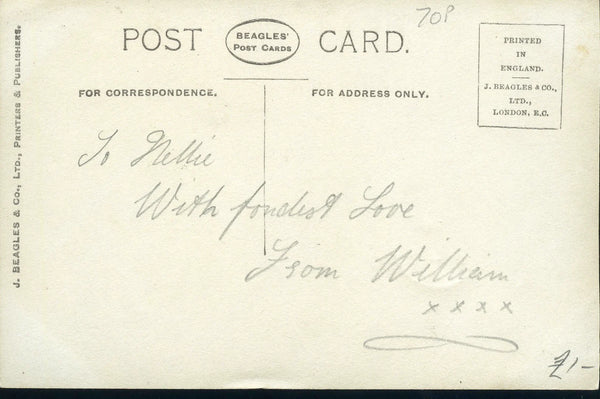 70P
POST CARD.
BEAGLES'
POST CARDS
PRINTED
IN
ENGLAND.
J. BEAGLES & CO.,
LTD.,
LONDON, E.C.
FOR CORRESPONDENCE.
FOR ADDRESS ONLY.
J. BEAGLES & CO., LTD., PRINTERS & PUBLISHERS.
To Nellie
With fondest Love
From William
x x x x
£1-